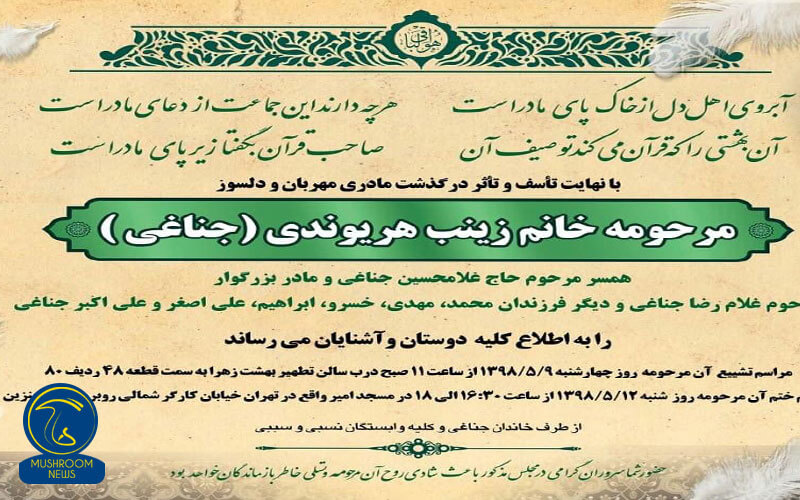 هو الباقی
آبروی اهل دل از خاک پای مادر است
هرچه دارند این جماعت از دعای مادر است
آن بهشتی را که قرآن می کند توصیف آن
صاحب قرآن بگفتا زیر پای مادر است
با نهایت تأسف و تأثر درگذشت مادری مهربان و دلسوز
مرحومه خانم زینب هریوندی (جناغی)
همسر مرحوم حاج غلامحسین جناغی و مادر بزرگوار
حوم غلام رضا جناغی و دیگر فرزندان محمد، مهدی، خسرو، ابراهیم، علی اصغر و علی اکبر جناغی
را به اطلاع کلیه دوستان و آشنایان می رساند
مراسم تشییع آن مرحومه روز چهارشنبه ۱۳۹۸/۵/۹ از ساعت ۱۱ صبح درب سالن تطهیر بهشت زهرا به سمت قطعه ۴۸ ردیف ۸۰
م ختم آن مرحومه روز شنبه ۱۳۹۸/۵/۱۲ از ساعت ۱۶:۳۰ الی ۱۸ در مسجد امیر واقع در تهران خیابان کارگر شمالی روبر نزین
از طرف خاندان جناغی و کلیه وابستگان نسبی و سببی
حضور شما سروران گرامی در مجلس مذکور باعث شادی روح آن مرحومه و تسلی خاطر بازماندگان خواهد بود
MUSHROOM
NEWS